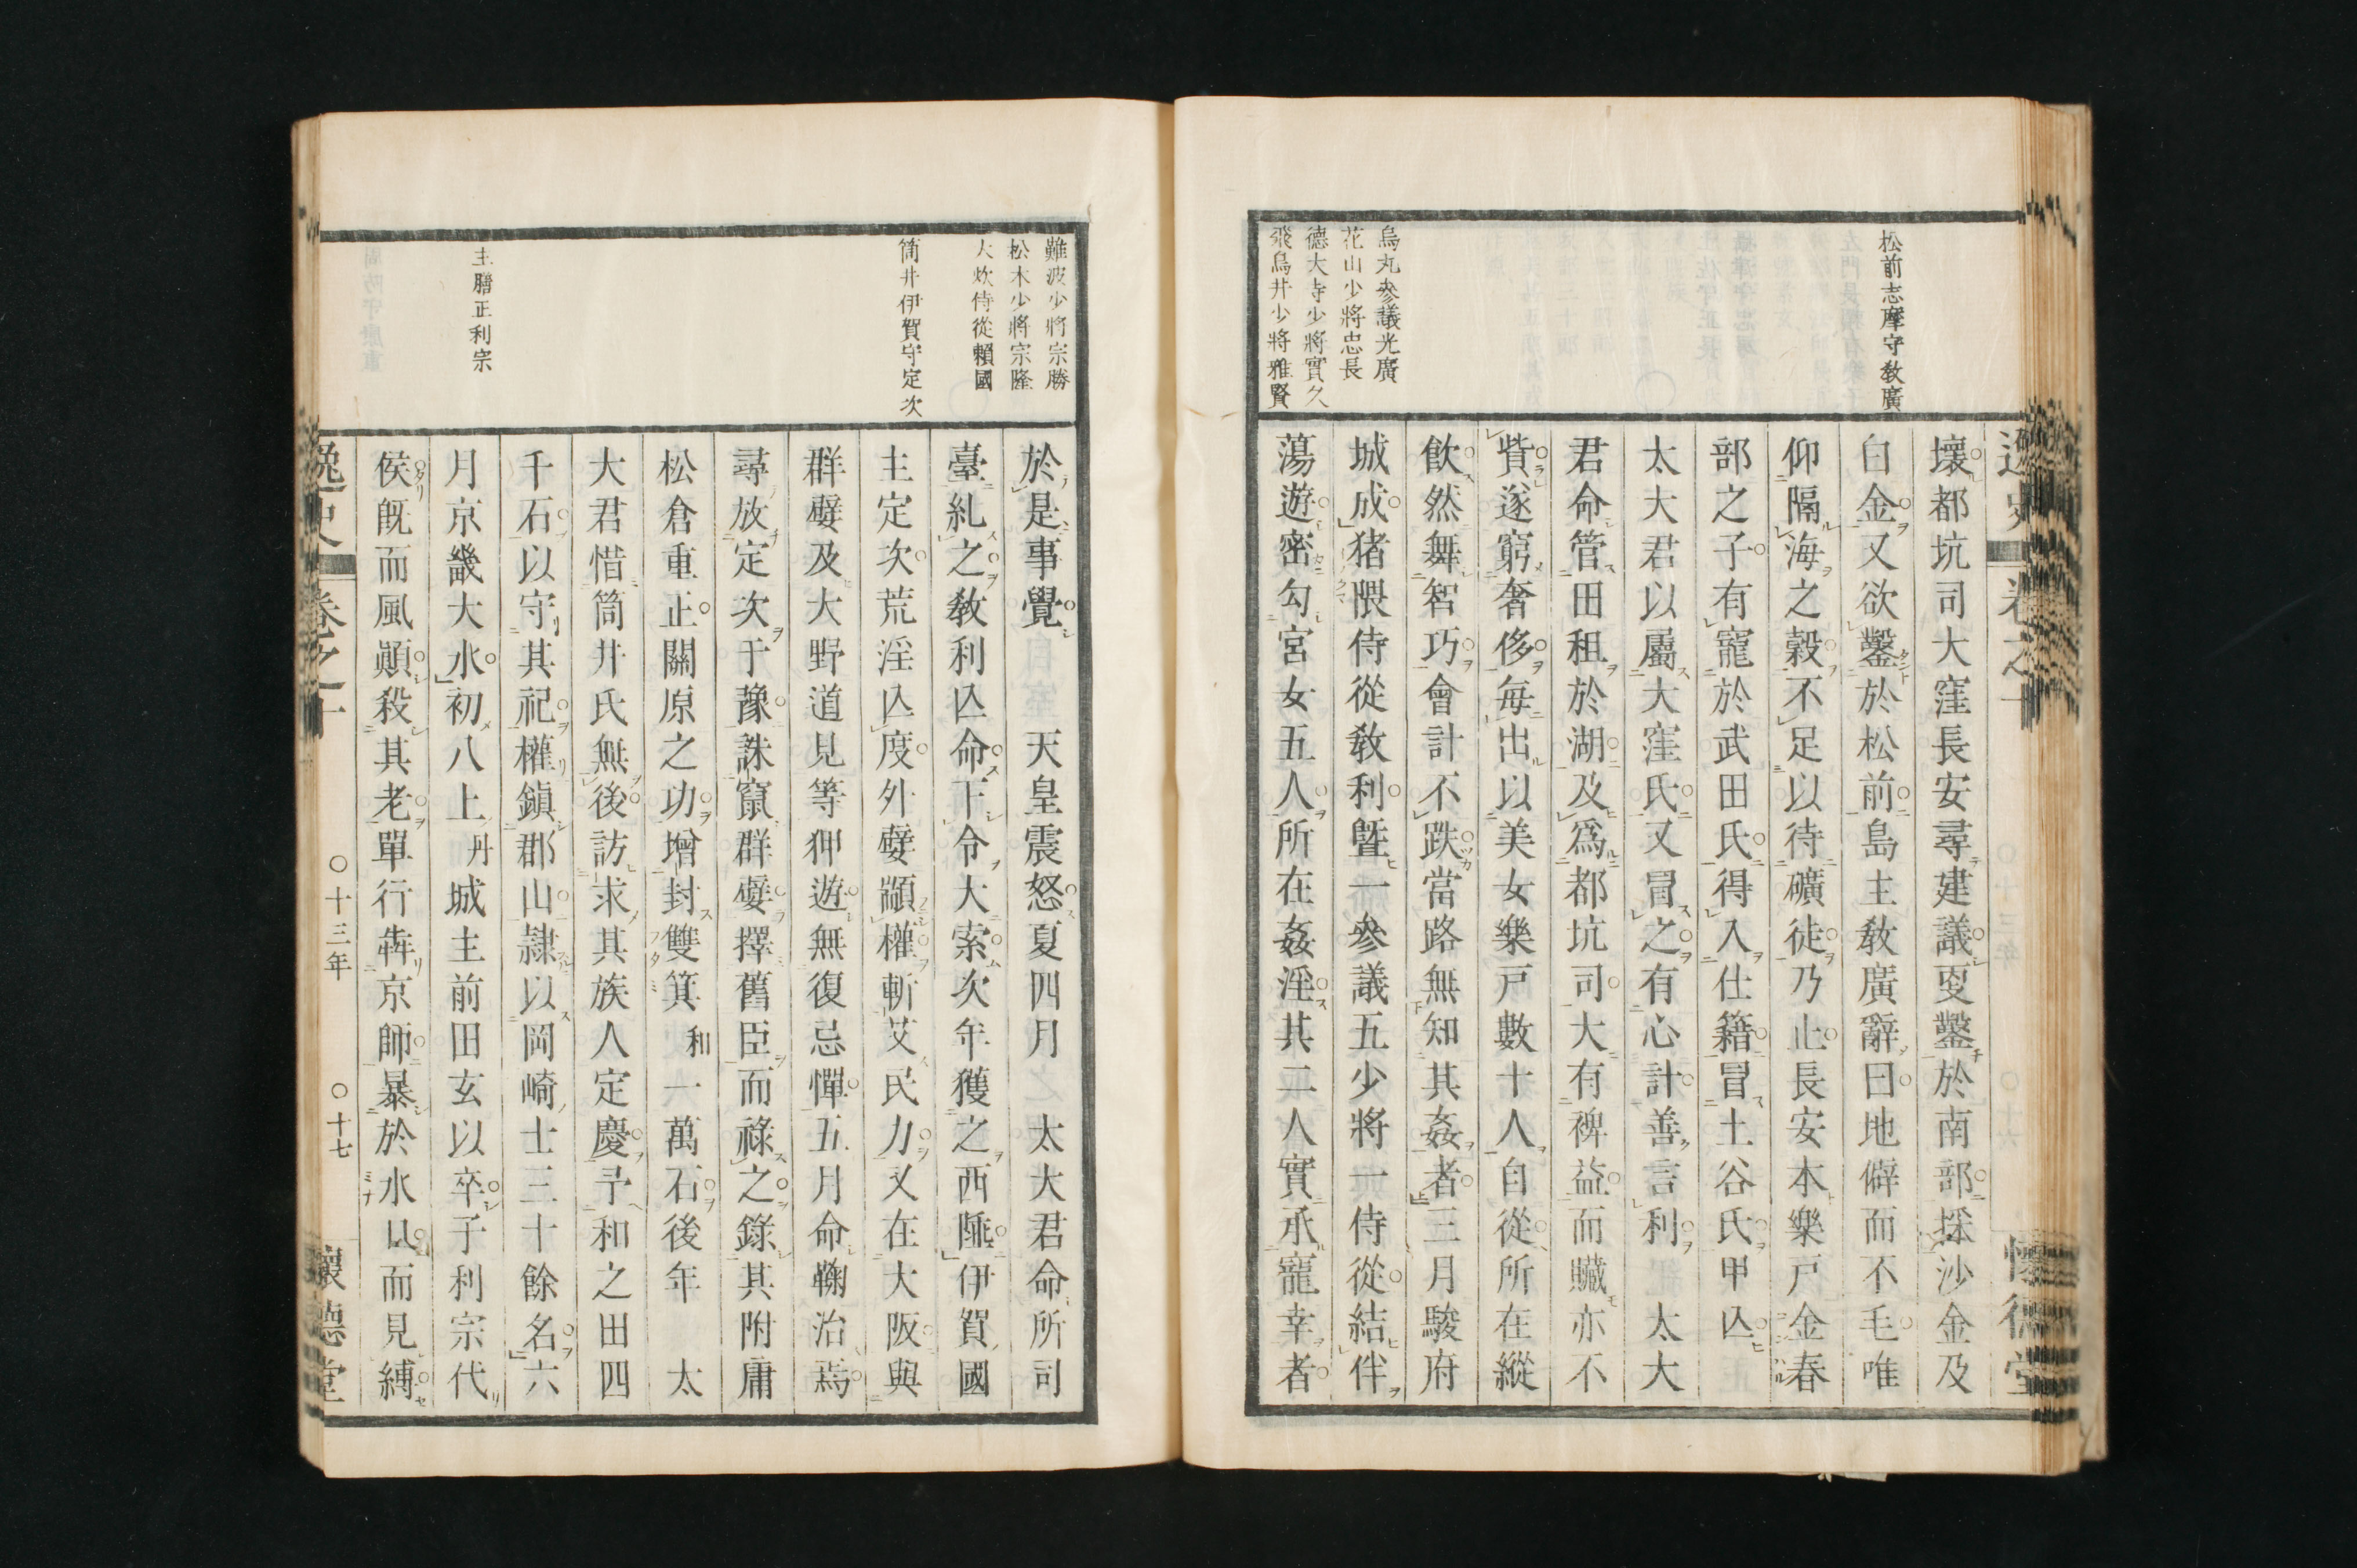 松前志摩守敎廣
烏丸參議光廣
花山少將忠長
德大寺少將實久
飛鳥井少將雅賢
壞都坑司大窪長安尋建議更鑿於南部採沙金及
白金又欲鑿於松前島主敎廣辭曰地僻而不毛唯
仰隔海之穀不足以待礦徒乃止長安本樂戸金春
部之子有寵於武田氏得入仕籍冒土谷氏甲亾
太大君以屬大窪氏又冒之有心計善言利 太大
君命管田租於湖及爲都坑司大有裨益而贓亦不
貲遂窮奢侈每出以美女樂戸數十人自從所在縱
飮然舞智巧會計不跌當路無知其姦者三月駿府
城成猪隈侍從敎利曁一參議五少將一侍從結伴
蕩遊密勾宮女五人所在姦淫其二人實承寵幸者
難波少將宗勝
松木少將宗隆
大炊侍從賴國
筒井伊賀守定次
主膳正利宗
於是事覺 天皇震怒夏四月 太大君命所司
臺糺之敎利亾命下令大索次年獲之西陲伊賀國
主定次荒淫亾度外嬖顓權斬艾民力又在大阪與
群嬖及大野道見等狎遊無復忌憚五月命鞫治焉
尋放定次于豫誅竄群嬖擇舊臣而祿之錄其附庸
松倉重正關原之功增封雙箕和一萬石後年 太
大君惜筒井氏無後訪求其族人定慶予和之田四
千石以守其祀權鎭郡山隷以岡崎士三十餘名六
月京畿大水初八上丹城主前田玄以卒子利宗代
侯旣而風顚殺其老單行犇京師暴於水以而見縛
逸史
卷之十
〇十三年
〇十七
懷德堂